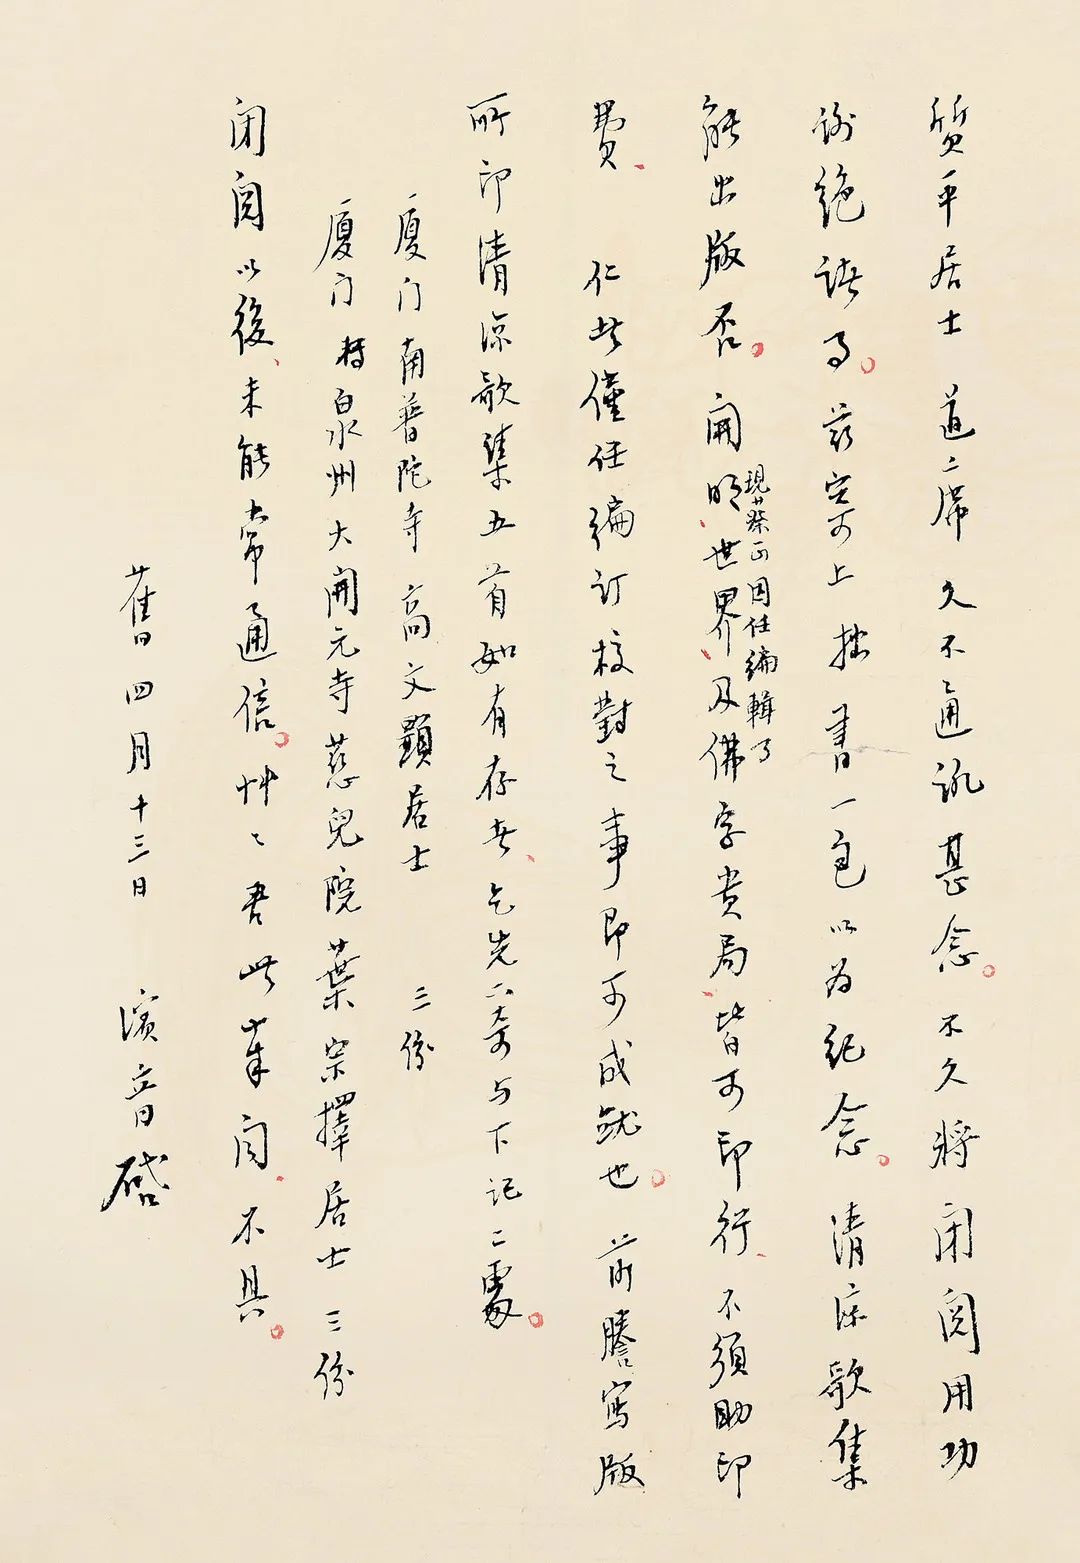 質平居士 道席 久不通訊甚念。不久將閉関用功
謝絕諸事。茲寄上拙書一包以為紀念。清凉歌集
能出版否。開明、世界、及佛学書局、皆可印行、不須助印
現蔡丏因任編輯事
費、 仁者僅任編訂校對之事即可成就也。前謄寫版
所印清凉歌集五首如有存者、乞先寄与下记二處。
厦门南普陀寺高文顯居士 三份
厦门 转泉州大開元寺慈兒院葉宗擇居士 三份
閉関以後、未能常通信。艸〻書此奉聞、不具。
舊四月十三日 演音啓